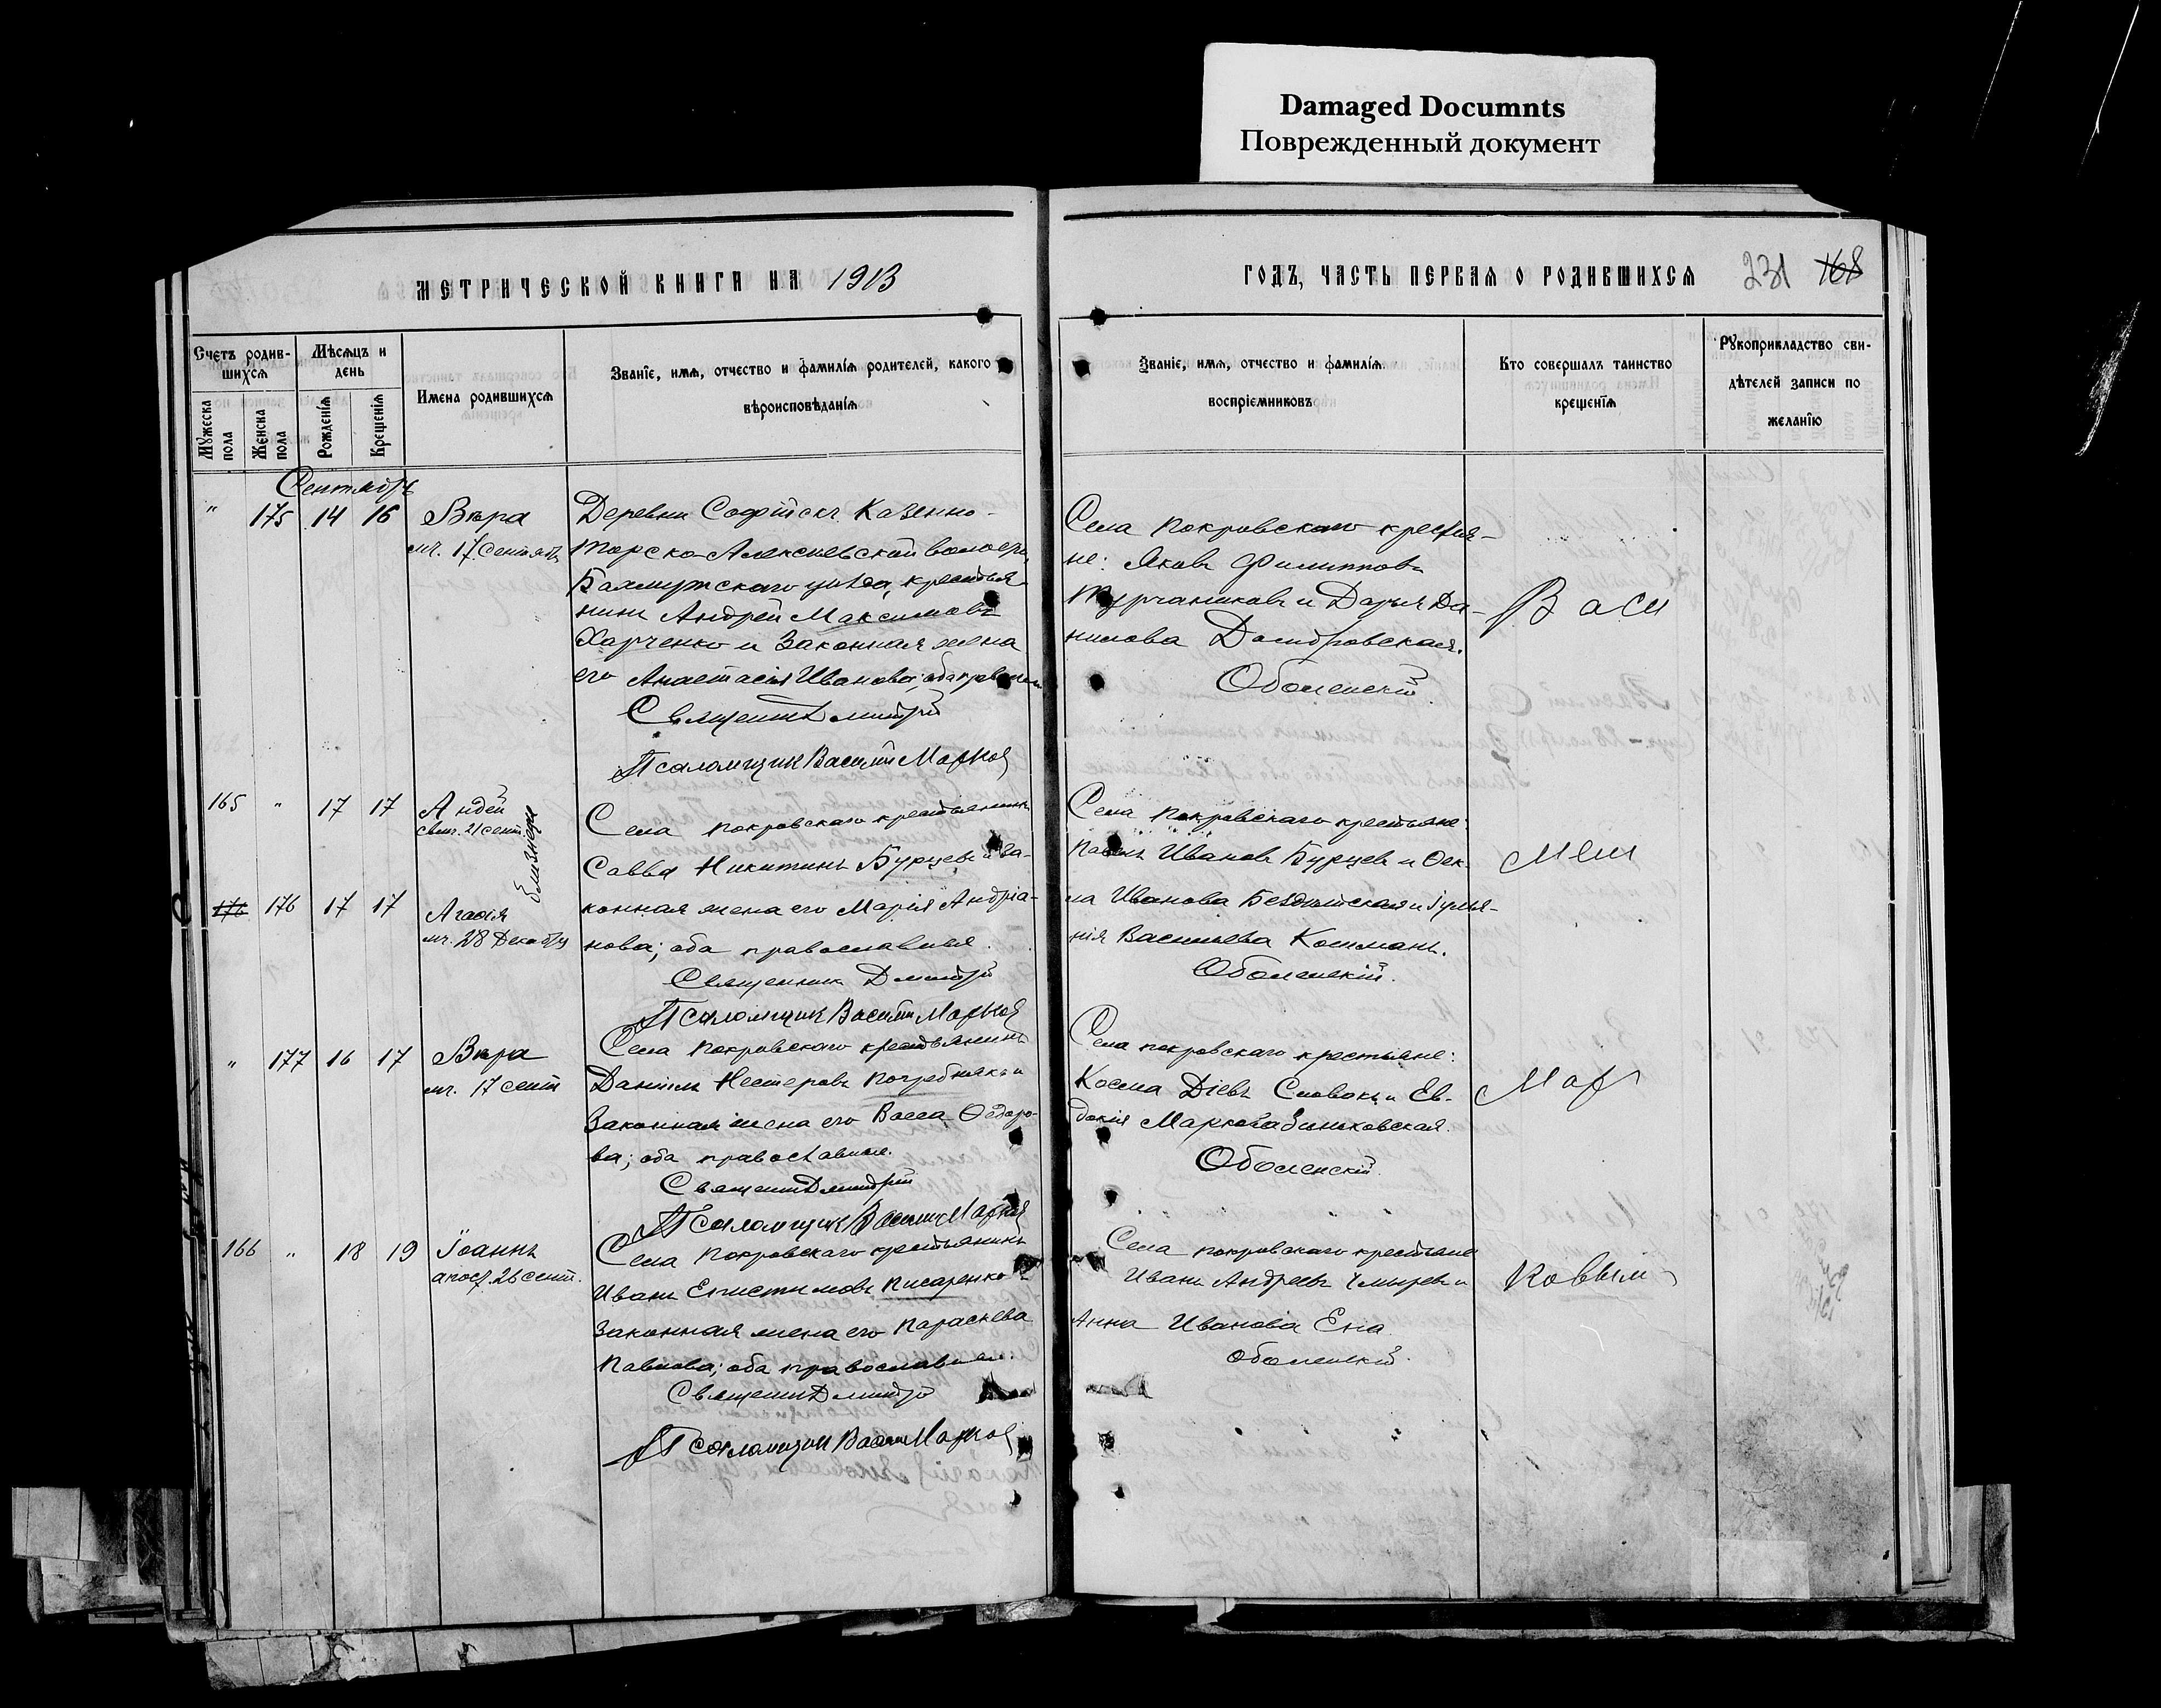 Damaged Documnts
Поврежденный документ
МЕТРИЧЕСКОЙ КНИГИ НА 1913
ГОДЪ, ЧАСТЬ ПЕРВАЯ О РОДИВШИХСЯ 231 168
Счетъ родив-
шихся
Мужеска пола
Женска пола
Мѣсяцъ и
день
Рожденія
Крещенія
Имена родившихся
Званіе, имя, отчество и фамилія родителей, какого
вѣроисповѣданія
Званіе, имя, отчество и фамилія
воспріемниковъ
Кто совершалъ таинство
крещенія
Рукоприкладство сви-
дѣтелей записи по
желанію
Сентябрь
" 175 14 16
Вѣра
мч. 17 Сентябр
Деревни Софійск Казенно-
торско-Алексѣевской волости,
Бахмутскаго уѣзда, крестья
нинъ Андрей Максимовъ
Харченко и законная жена
его Анастасія Иванова; оба
Священ Дмитрій
Псаломщик Василій
Села Покровскаго крестья-
не: Яковъ Филипповъ
и Дарья Да-
нилова
Оболенскій
Васи
165 " 17 17
свмч. 21 сент.
близнецы
176 176 17 17
Агафія
мч. 28 Декабря
Села Покровскаго крестьянинъ
Савва Никитинъ Бурцевъ и за-
конная жена его Марія Андріа-
нова; оба православные.
Священникъ Дмитрій
Псаломщик Василій
Села Покровскаго крестьяне:
Павелъ Ивановъ Бурцевъ и Ѳек-
ла Иванова и
Васильева
Оболенскій.
" 177 16 17
Вѣра
мч. 17 сент
Села Покровскаго крестьянинъ
Даніилъ Нестеровъ Погребнякъ и
законная жена его Васса Ѳедоро-
ва; оба православные.
Священ Дмитрій
Псаломщик Василій
Села Покровскаго крестьяне:
Косма и Ев-
докія Маркова Зиньковская.
Оболенскій
166 " 18 19
Іоаннъ
апост. 26 сент.
Села Покровскаго крестьянинъ
Иванъ Писаренко и
законная жена его Параскева
Павлова; оба православные.
Священ Дмитрій
Псаломщик Василій
Села Покровскаго крестьяне
Иванъ Андреевъ и
Анна Иванова
Оболенскій.